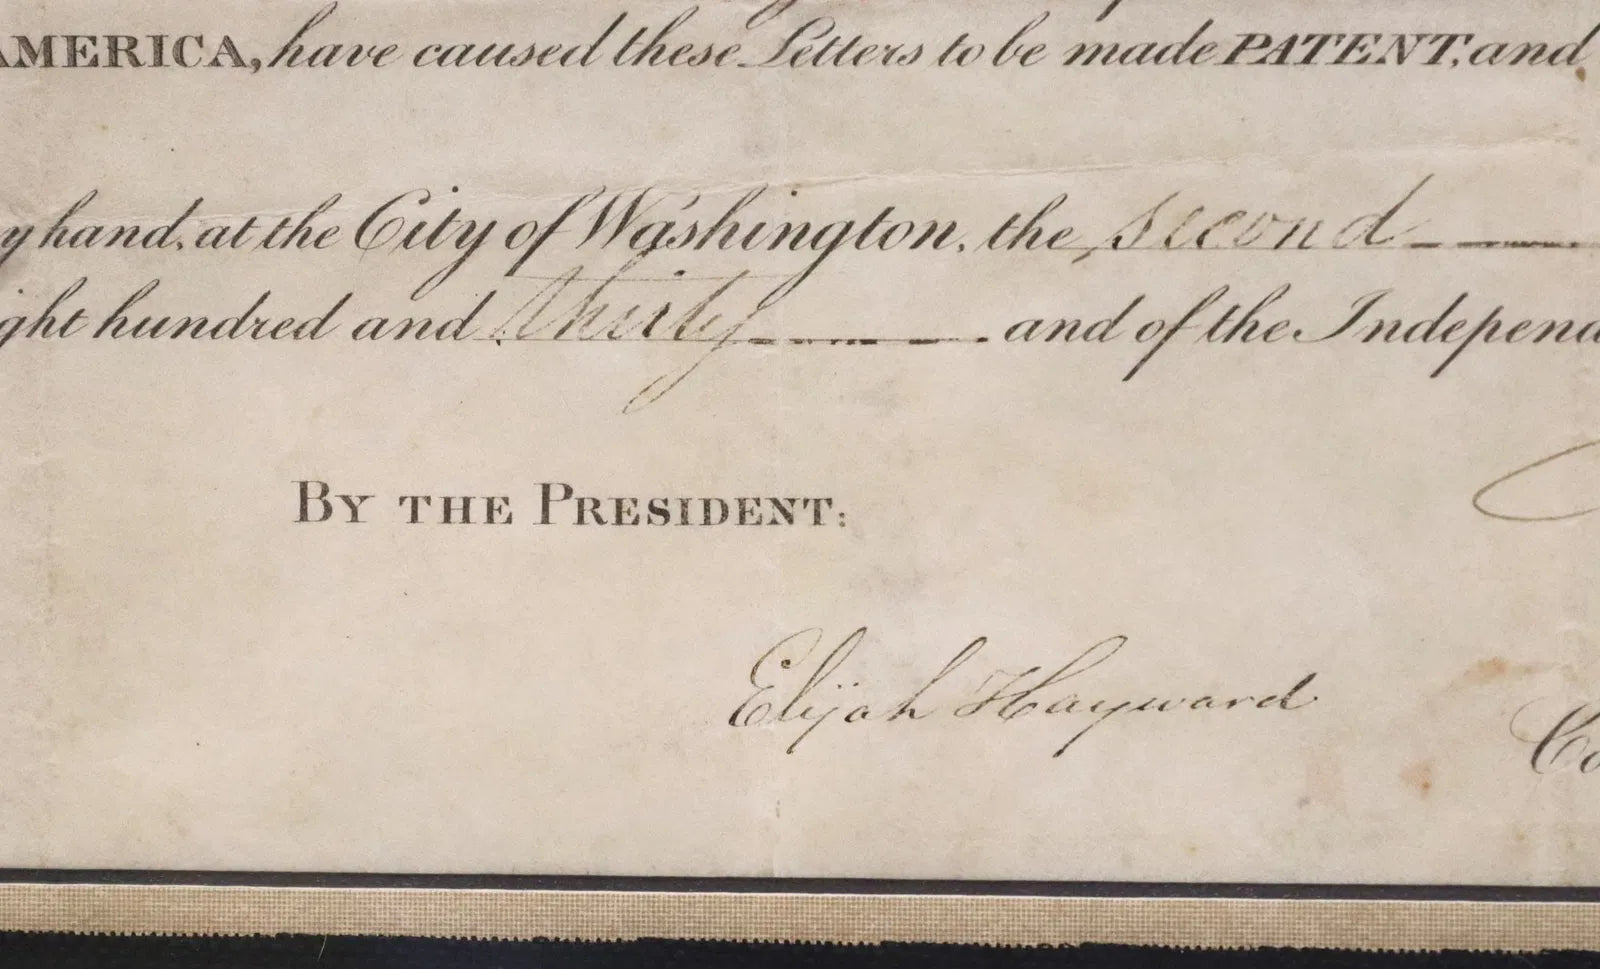 AMERICA, have caused these Letters to be made PATENT, and
y hand, at the City of Washington, the second
ght hundred and thirty and of the Independ
BY THE PRESIDENT:
Elijah Hayward
Co